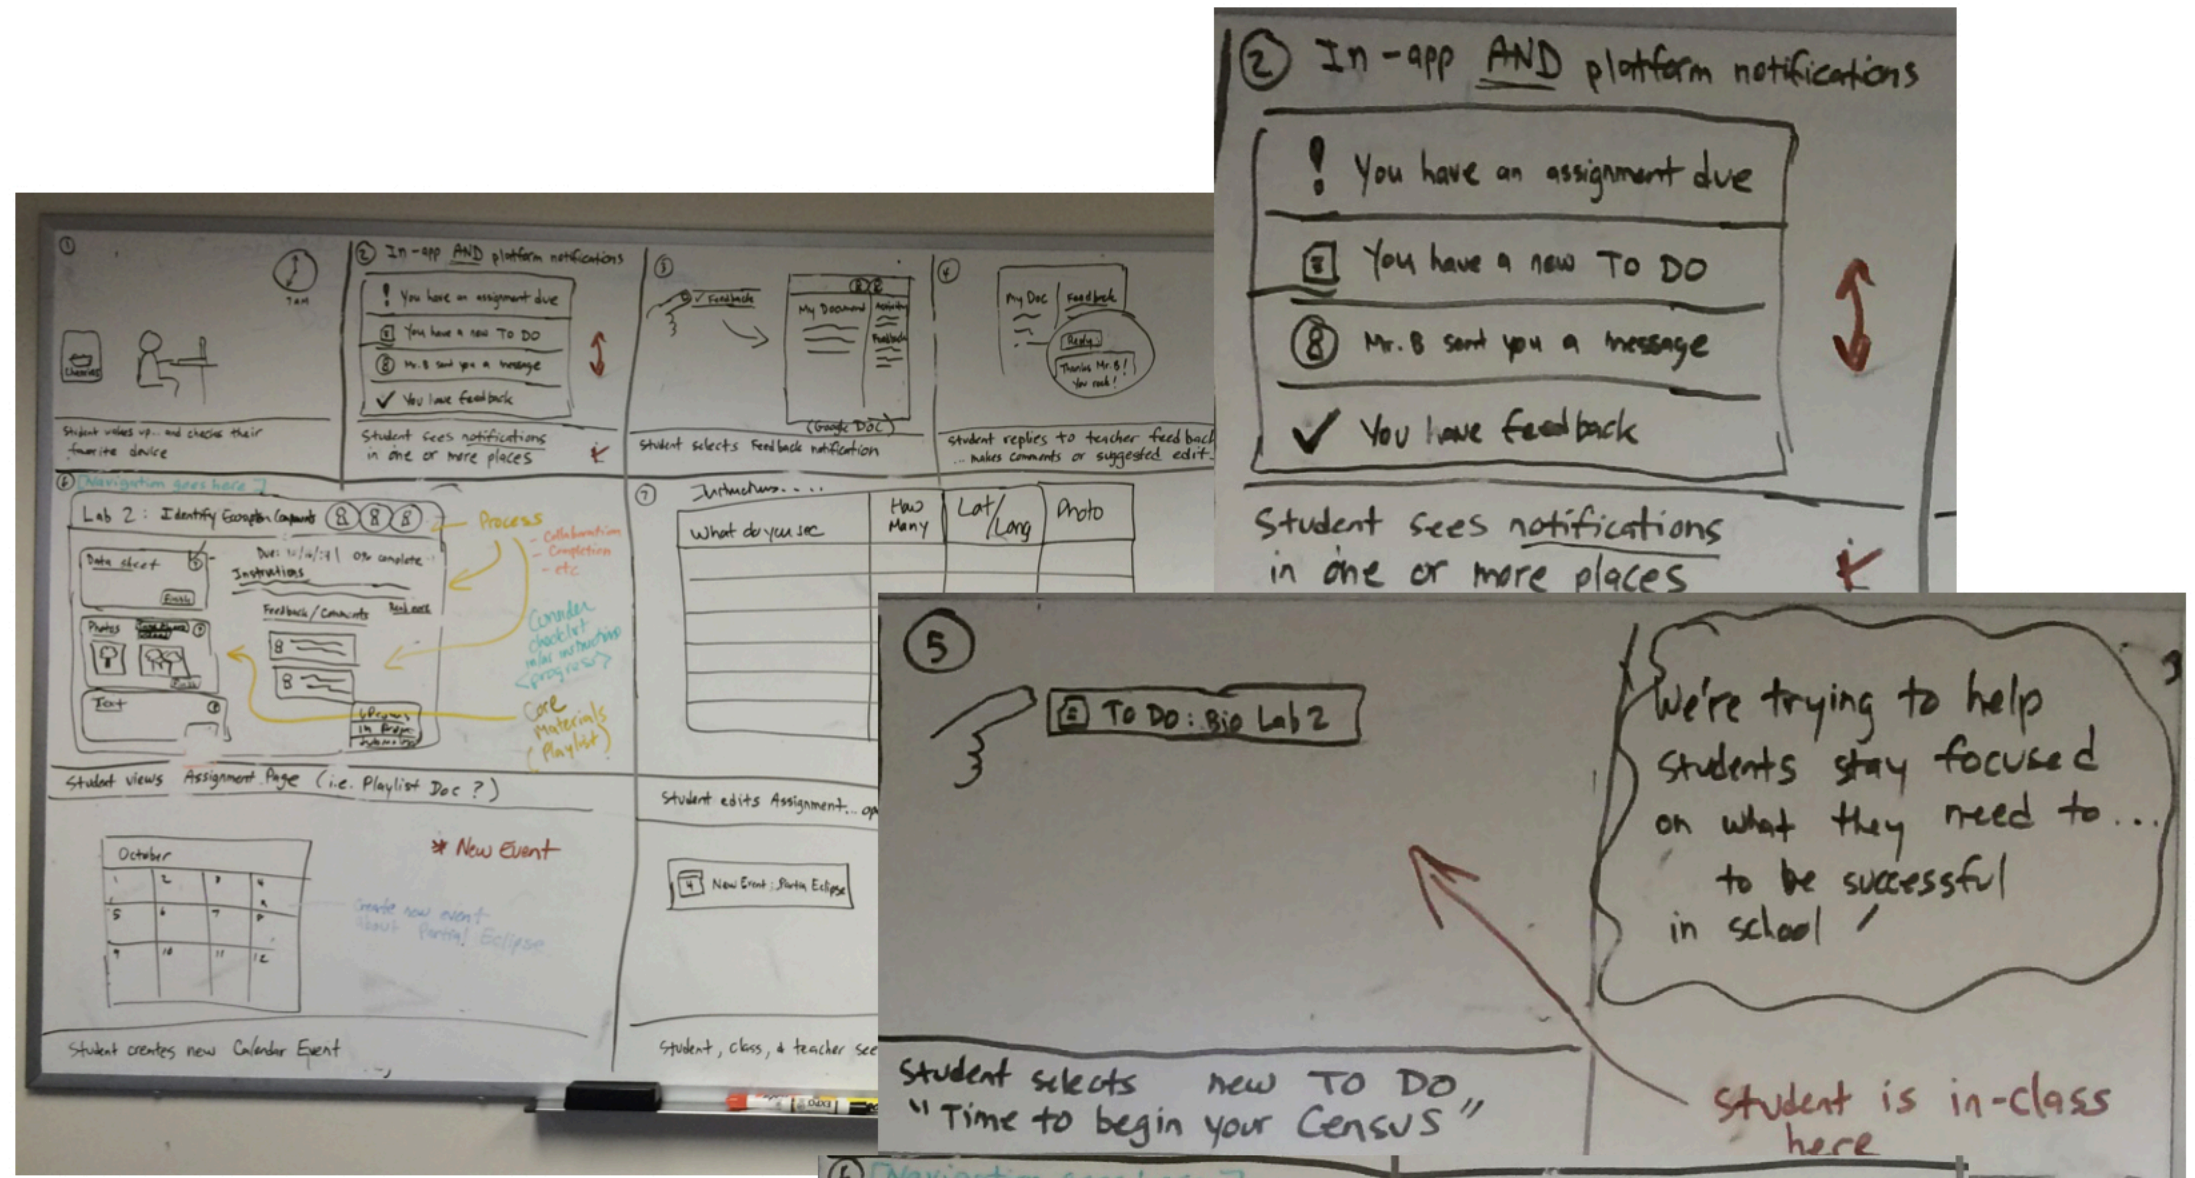 1
7AM
Cheerios
Student wakes up... and checks their
favorite device
2 In-app AND platform notifications
! You have an assignment due
You have a new TO DO
8 Mr. B sent you a message
✓ You have feedback
Student sees notifications
in one or more places
3
✓ Feedback
My Document
Feedback
(Google Doc)
Student selects Feedback notification
4
My Doc
Feedback
Reply
Thanks Mr. B!
You rock!
Student replies to teacher feedback
... makes comments or suggested edit.
6 [Navigation goes here]
Lab 2: Identify Ecosystem Components
Process
- Collaboration
- Completion
- etc
Data sheet
Due:
0% complete
Instructions
Finish
Feedback/Comments
Read more
Photos
Text
Consider
checklist
instructions
<progress>
Core
Materials
(Playlist)
Student views Assignment Page (i.e. Playlist Doc?)
7
Instructions....
What do you see
How
Many
Lat/
Long
Photo
Student edits Assignment...
October
1 2 3 4
5 6 7 8
9 10 11 12
* New Event
Create new event
about Partial Eclipse
Student creates new Calendar Event
4 New Event: Partial Eclipse
Student, class, & teacher see
EXPO
2 In-app AND platform notifications
! You have an assignment due
You have a new TO DO
8 Mr. B sent you a message
✓ You have feedback
Student sees notifications
in one or more places
5
TO DO: Bio Lab 2
Student selects new TO DO
"Time to begin your Census"
We're trying to help
students stay focused
on what they need to...
to be successful
in school
Student is in-class
here
6 [Navigation goes here]